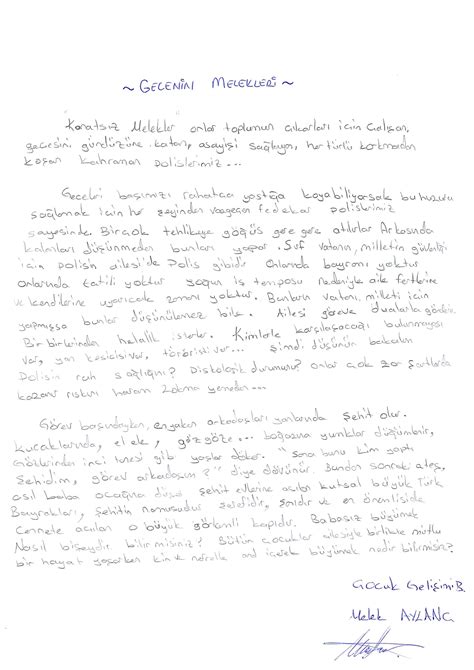 ~ GECENİN MELEKLERİ ~
Kanatsız Melekler onlar toplumun çıkarları için çalışan,
gecesini gündüzüne katan, asayişi sağlayan, her türlü korkmadan
koşan kahraman polislerimiz...
Geceleri başımızı rahatça yastığa koyabiliyorsak bu huzuru
sağlamak için her şeyinden vazgeçen fedekar polislerimiz
sayesinde. Birçok tehlikeye göğüs gere gere atılırlar Arkasında
kalanları düşünmeden bunları yapar. Sırf vatanın, milletin güvenliği
için polisin ailesi'de Polis gibidir. Onlarında bayramı yoktur
onlarında tatili yoktur yoğun iş temposu nedeniyle aile fertlerine
ve kendilerine ayıracak zamanı yoktur. Bunların vatanı, milleti için
yapmışsa bunlar düşünülemez bile. Ailesi göreve dualarla gönderir.
Bir birlerinden helallik isterler. Kimlerle karşılaşacağı
var, yan kesicisi var, teröristi var... Şimdi düşünün bakalım
Polisin ruh sağlığını? Psikolojik durumunu? onlar çok zor şartlarda
kazanır rızkını haram lokma yemeden...
Görev başındayken, en yakın arkadaşları yanlarında şehit olur.
Kucaklarında, el ele, göz göze... boğazına yumruklar düğümlenir,
Gözlerinden inci tanesi gibi yaşlar döker. "Sana bunu kim yaptı
Şehidim, görev arkadaşım?" diye dövünür. Bundan sonraki ateş,
asıl baba ocağına düşer şehit evlerine açılan kutsal büyük Türk
Bayrakları, şehitin namusudur şerefidir, ve en önemliside
Cennete açılan o büyük görkemli kapıdır. Babasız büyümek
Nasıl bişeydir bilirmisiniz? Bütün çocuklar ailesiyle birlikte mutlu
bir hayat yaşarken kin nefretle and içerek büyümek nedir bilirmisiniz?
Çocuk Gelişimi B.
Melek AYLANÇ